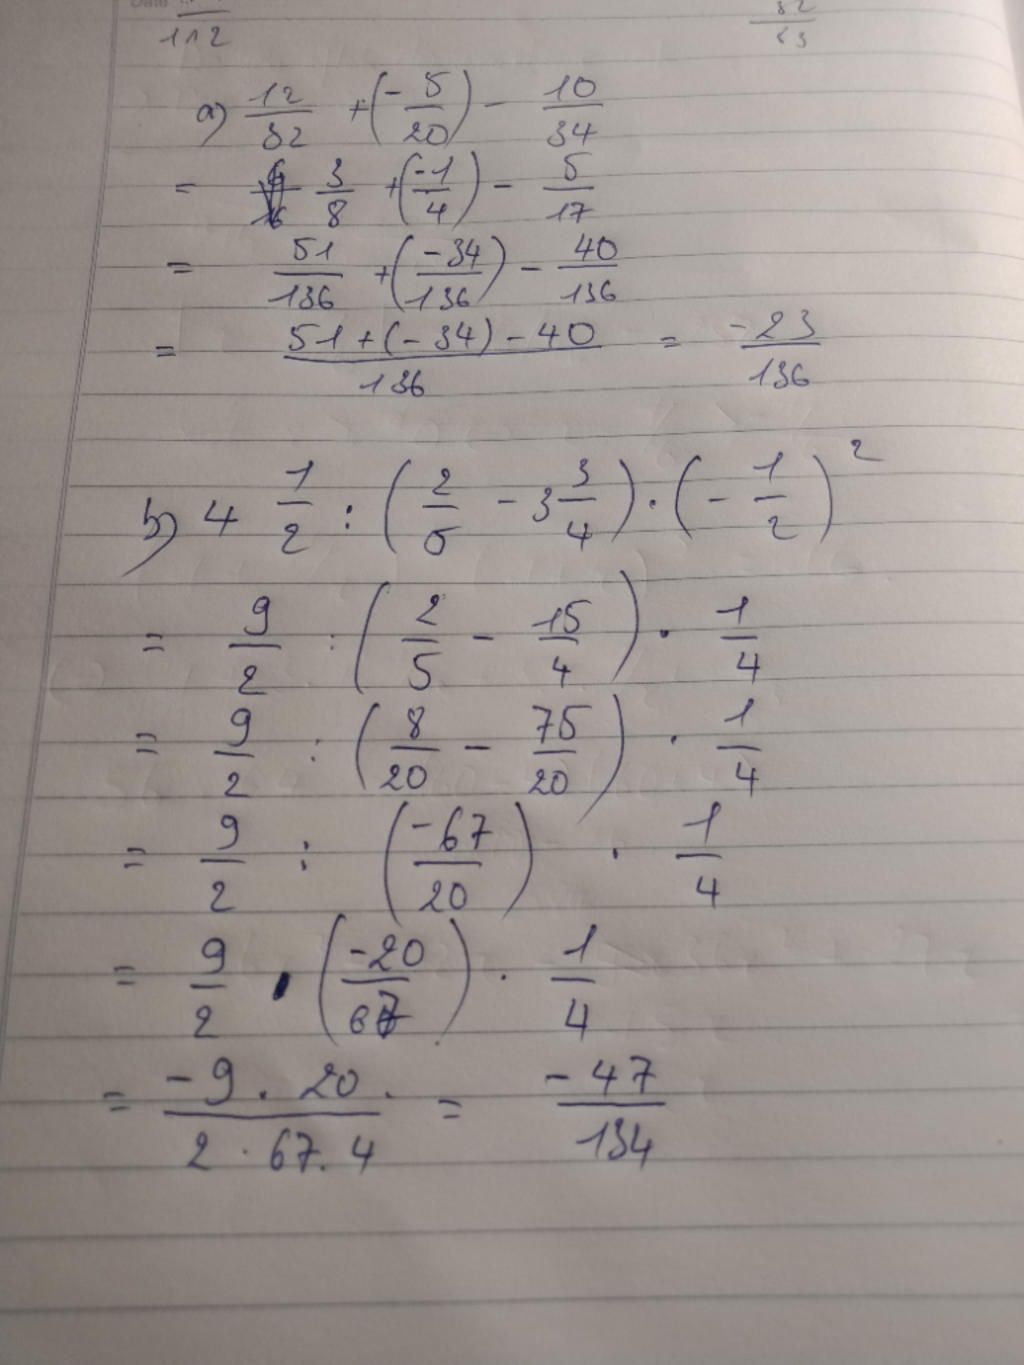 Date
112
32
23
a) 12/32 + (-5/20) - 10/34
= 3/8 + (-1/4) - 5/17
= 51/136 + (-34/136) - 40/136
= 51+(-34)-40/136 = -23/136
b) 4 1/2 : (2/5 - 3 3/4) · (-1/2)²
= 9/2 : (2/5 - 15/4) · 1/4
= 9/2 : (8/20 - 75/20) · 1/4
= 9/2 : (-67/20) · 1/4
= 9/2 · (-20/67) · 1/4
= -9 · 20 ·/2 · 67 . 4 = -47/134